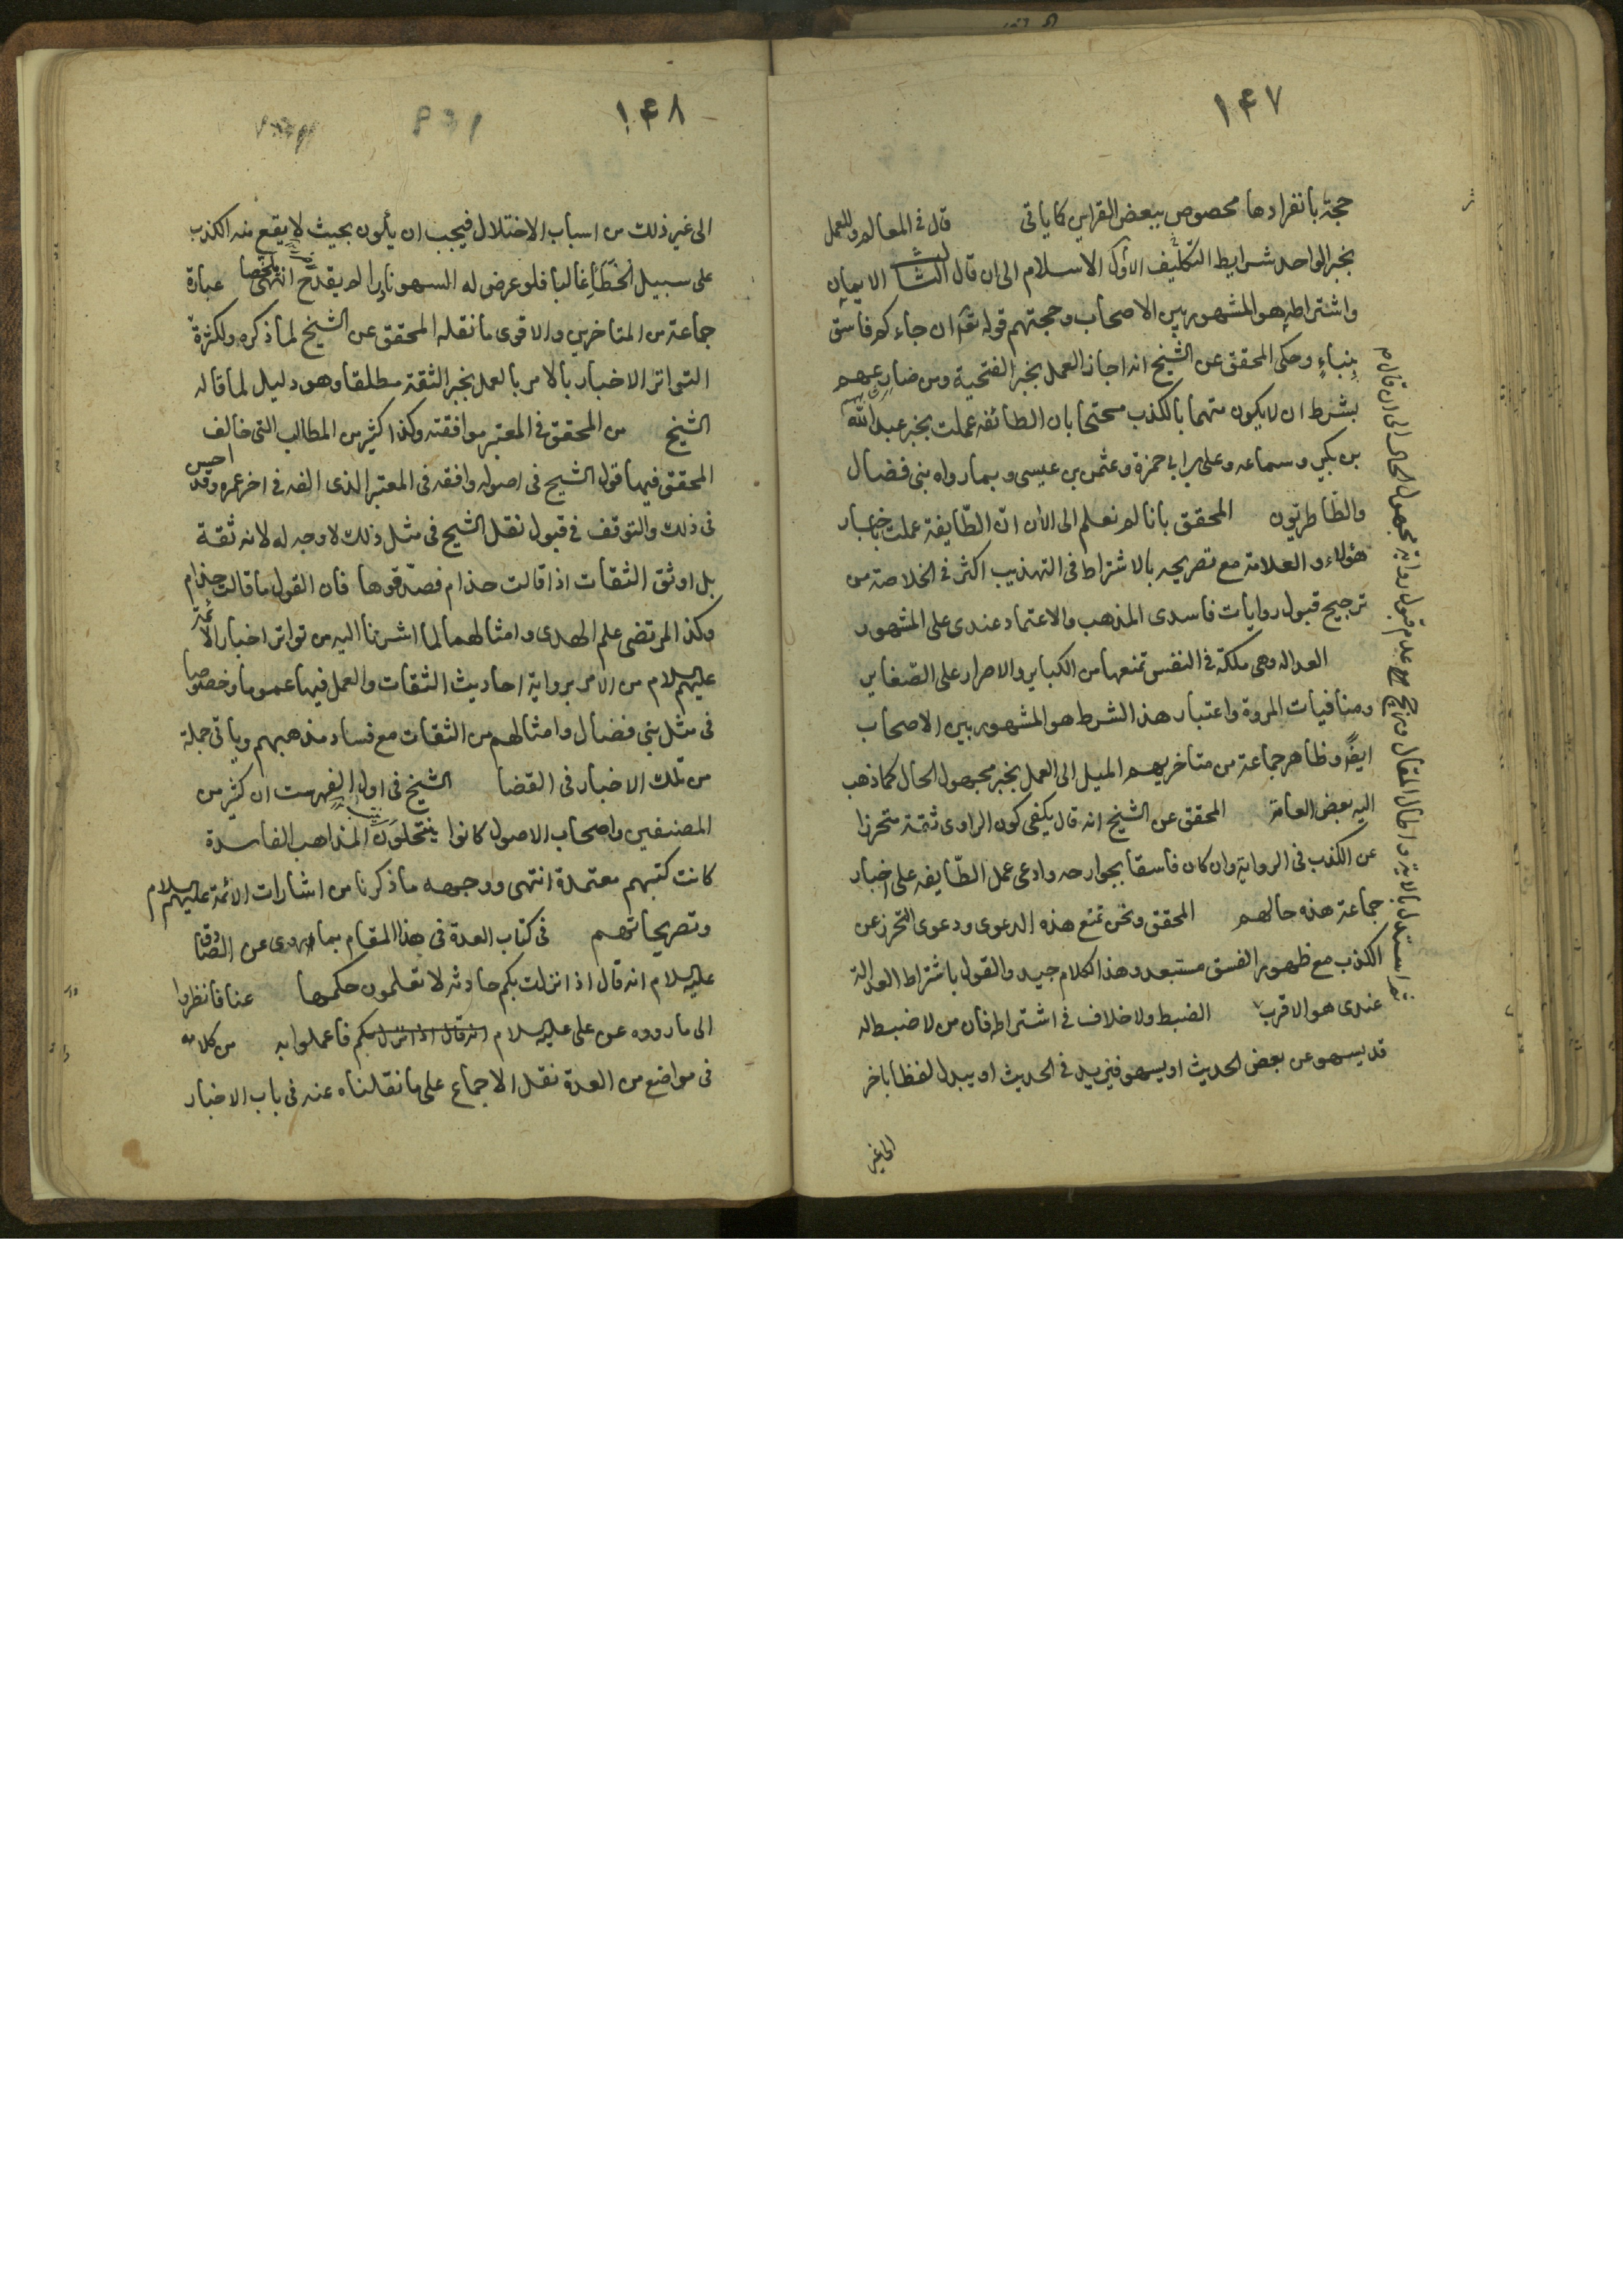 ١٤٧
حجة بانفرادها محصوص ببعض القراين كما ياتى قال فى المعالم وللعمل
بخبر الواحد شرايط التكليف الاول الاسلام الى ان قال الثالث الايمان
واشتراطه هو المشهور بين الاصحاب وحجتهم قوله تعه ان جاءكم فاسق
بنباءٍ وحكى المحقق عن الشيخ انه اجاز العمل بخبر الفتحية ومن ضارعهم
بشرط ان لا يكون متهما بالكذب محتجا بان الطائفه عملت بخبر عبد الله
بن بكير وسماعه وعلى بن ابى حمزة وعثمن بن عيسى وبما رواه بنى فضال
والطّاطريّون المحقق بانا لم نعلم الى الان انّ الطّايفة عملت باخبار
هؤلاء والعلامة مع تصريحه بالاشتراط فى التهذيب اكثر فى الخلاصة من
ترجيح قبول روايات فاسدى المذهب والاعتماد عندى على المشهور
العداله وهى ملكة فى النفس تمنعها من الكباير والاصرار على الصّغاير
ومنافيات المروة واعتبار هذا الشرط هو المشهور بين الاصحاب
ايضًا وظاهر جماعة من متاخريهم الميل الى العمل بخبر مجهول الحال كما ذهب
اليه بعض العامة المحقق عن الشيخ انه قال يكفى كون الراوى ثقة متحرزا
عن الكذب فى الرواية وان كان فاسقا بجوارحه وادعى عمل الطّايفه على اخبار
جماعة هذه حالهم المحقق ونحن نمنع هذه الدعوى ودعوى التحرز عن
الكذب مع ظهور الفسق مستبعد وهذا الكلام جيد والقول باشتراط العدالة
عندى هو الاقرب الضبط ولا خلاف فى اشتراطه فان من لا ضبط له
قد يسهو عن بعض الحديث او يسهو فيزيد فى الحديث او يبدل لفظا باخر
الى غير
ثم استدل بالاية واطال المقال عدم قبول رواية مجهول الحال الى ان قال
١٤٨
الى غير ذلك من اسباب الاختلال فيجب ان يكون بحيث لا يقع منه الكذب
على سبيل الخطأ غالبا فلو عرض له السهو نادرا لم يقدح انتهى ملخّصا عبارة
جماعة من المتاخرين والاقوى ما نقله المحقق عن الشيخ لما ذكره ولكثرة
التواتر الاخبار بالامر بالعمل بخبر الثقة مطلقا وهو دليل لما قاله
الشيخ من المحقق فى المعتبر موافقته وكذا كثير من المطالب التى خالف
المحقق فيها قول الشيخ فى اصوله وافقه فى المعتبر الذى الفه فى اخر عمره وقد احسن
فى ذلك والتوقف فى قبول نقل الشيخ فى مثل ذلك لا وجه له لانه ثقة
بل اوثق الثقات اذا قالت حذام فصدّقوها فان القول ما قالت حذام
وكذا المرتضى علم الهدى وامثالهما لما اشرنا اليه من تواتر اخبار الائمة
عليهم السلام من الامر برواية احاديث الثقات والعمل فيها عموما وخصوصا
فى مثل بنى فضال وامثالهم من الثقات مع فساد مذهبهم وياتى جملة
من تلك الاخبار فى القضا الشيخ فى اول الفهرست ان كثير من
المصنفين واصحاب الاصول كانوا ينتحلون المذاهب الفاسدة
كانت كتبهم معتمدة انتهى ووجهه ما ذكرنا من اشارات الائمة عليهم السلام
وتصريحاتهم فى كتاب العدة فى هذا المقام بما روى عن الصادق
عليه السلام انه قال اذا نزلت بكم حادثه لا تعلمون حكمها عنا فانظروا
الى ما رووه عن على عليه السلام انه قال اذا نزل بكم فاعملوا به من كلامه
فى مواضع من العدة نقل الاجماع على ما نقلناه عنه فى باب الاخبار